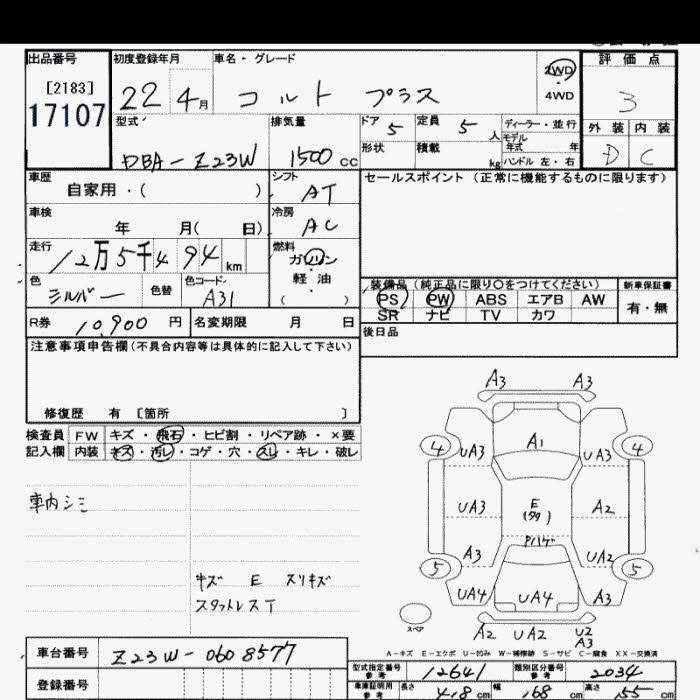 出品番号 初度登録年月 車名・グレード 評価点
[2183]
17107
22 4月 コルト プラス 2WD・4WD 3
外装 内装
D C
型式 排気量 ドア 定員 ディーラー・並行
DBA-Z23W 1500cc 5 5人 モデル年式 年
形状 積載 kg ハンドル 左・右
車歴 シフト セールスポイント(正常に機能するものに限ります)
自家用・( ) AT
車検 冷房
年 月( 日) AC
走行 燃料
12万5千494km ガソリン・軽油・( )
色 色替 色コード
シルバー A31
装備品(純正品に限り○をつけてください) 新車保証書
PS PW ABS エアB AW 有・無
SR ナビ TV カワ
R券 10,900円 名変期限 月 日
後日品
注意事項申告欄(不具合内容等は具体的に記入して下さい)
修復歴 有 [箇所 ]
検査員 FW キズ・飛石・ヒビ割・リペア跡・×要
記入欄 内装 キズ・汚レ・コゲ・穴・スレ・キレ・破レ
車内シミ
キズ E スリキズ
スタットレスT
A3 A3
A1
4 UA3 UA3 4
UA3 E A2
Pハゲ
A3 UA2
5 5
UA4 UA4 A3
スペア
A2 UA2 U2
A3
A-キズ E-エクボ U-凹み W-補修跡 S-サビ C-腐食 XX-交換済
車台番号 Z23W-0608577
登録番号
型式指定番号 参考 12641 類別区分番号 参考 2034
車庫証明用 参考 長さ 418cm 幅 168cm 高さ 155cm